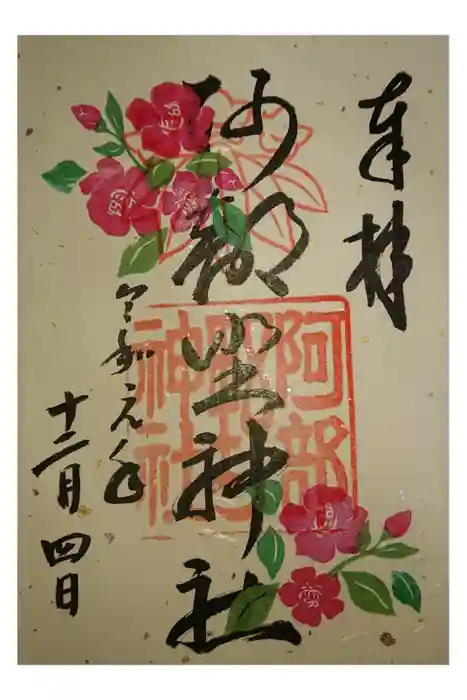 奉拝
阿部野神社
阿部野神社
令和元年
十二月四日